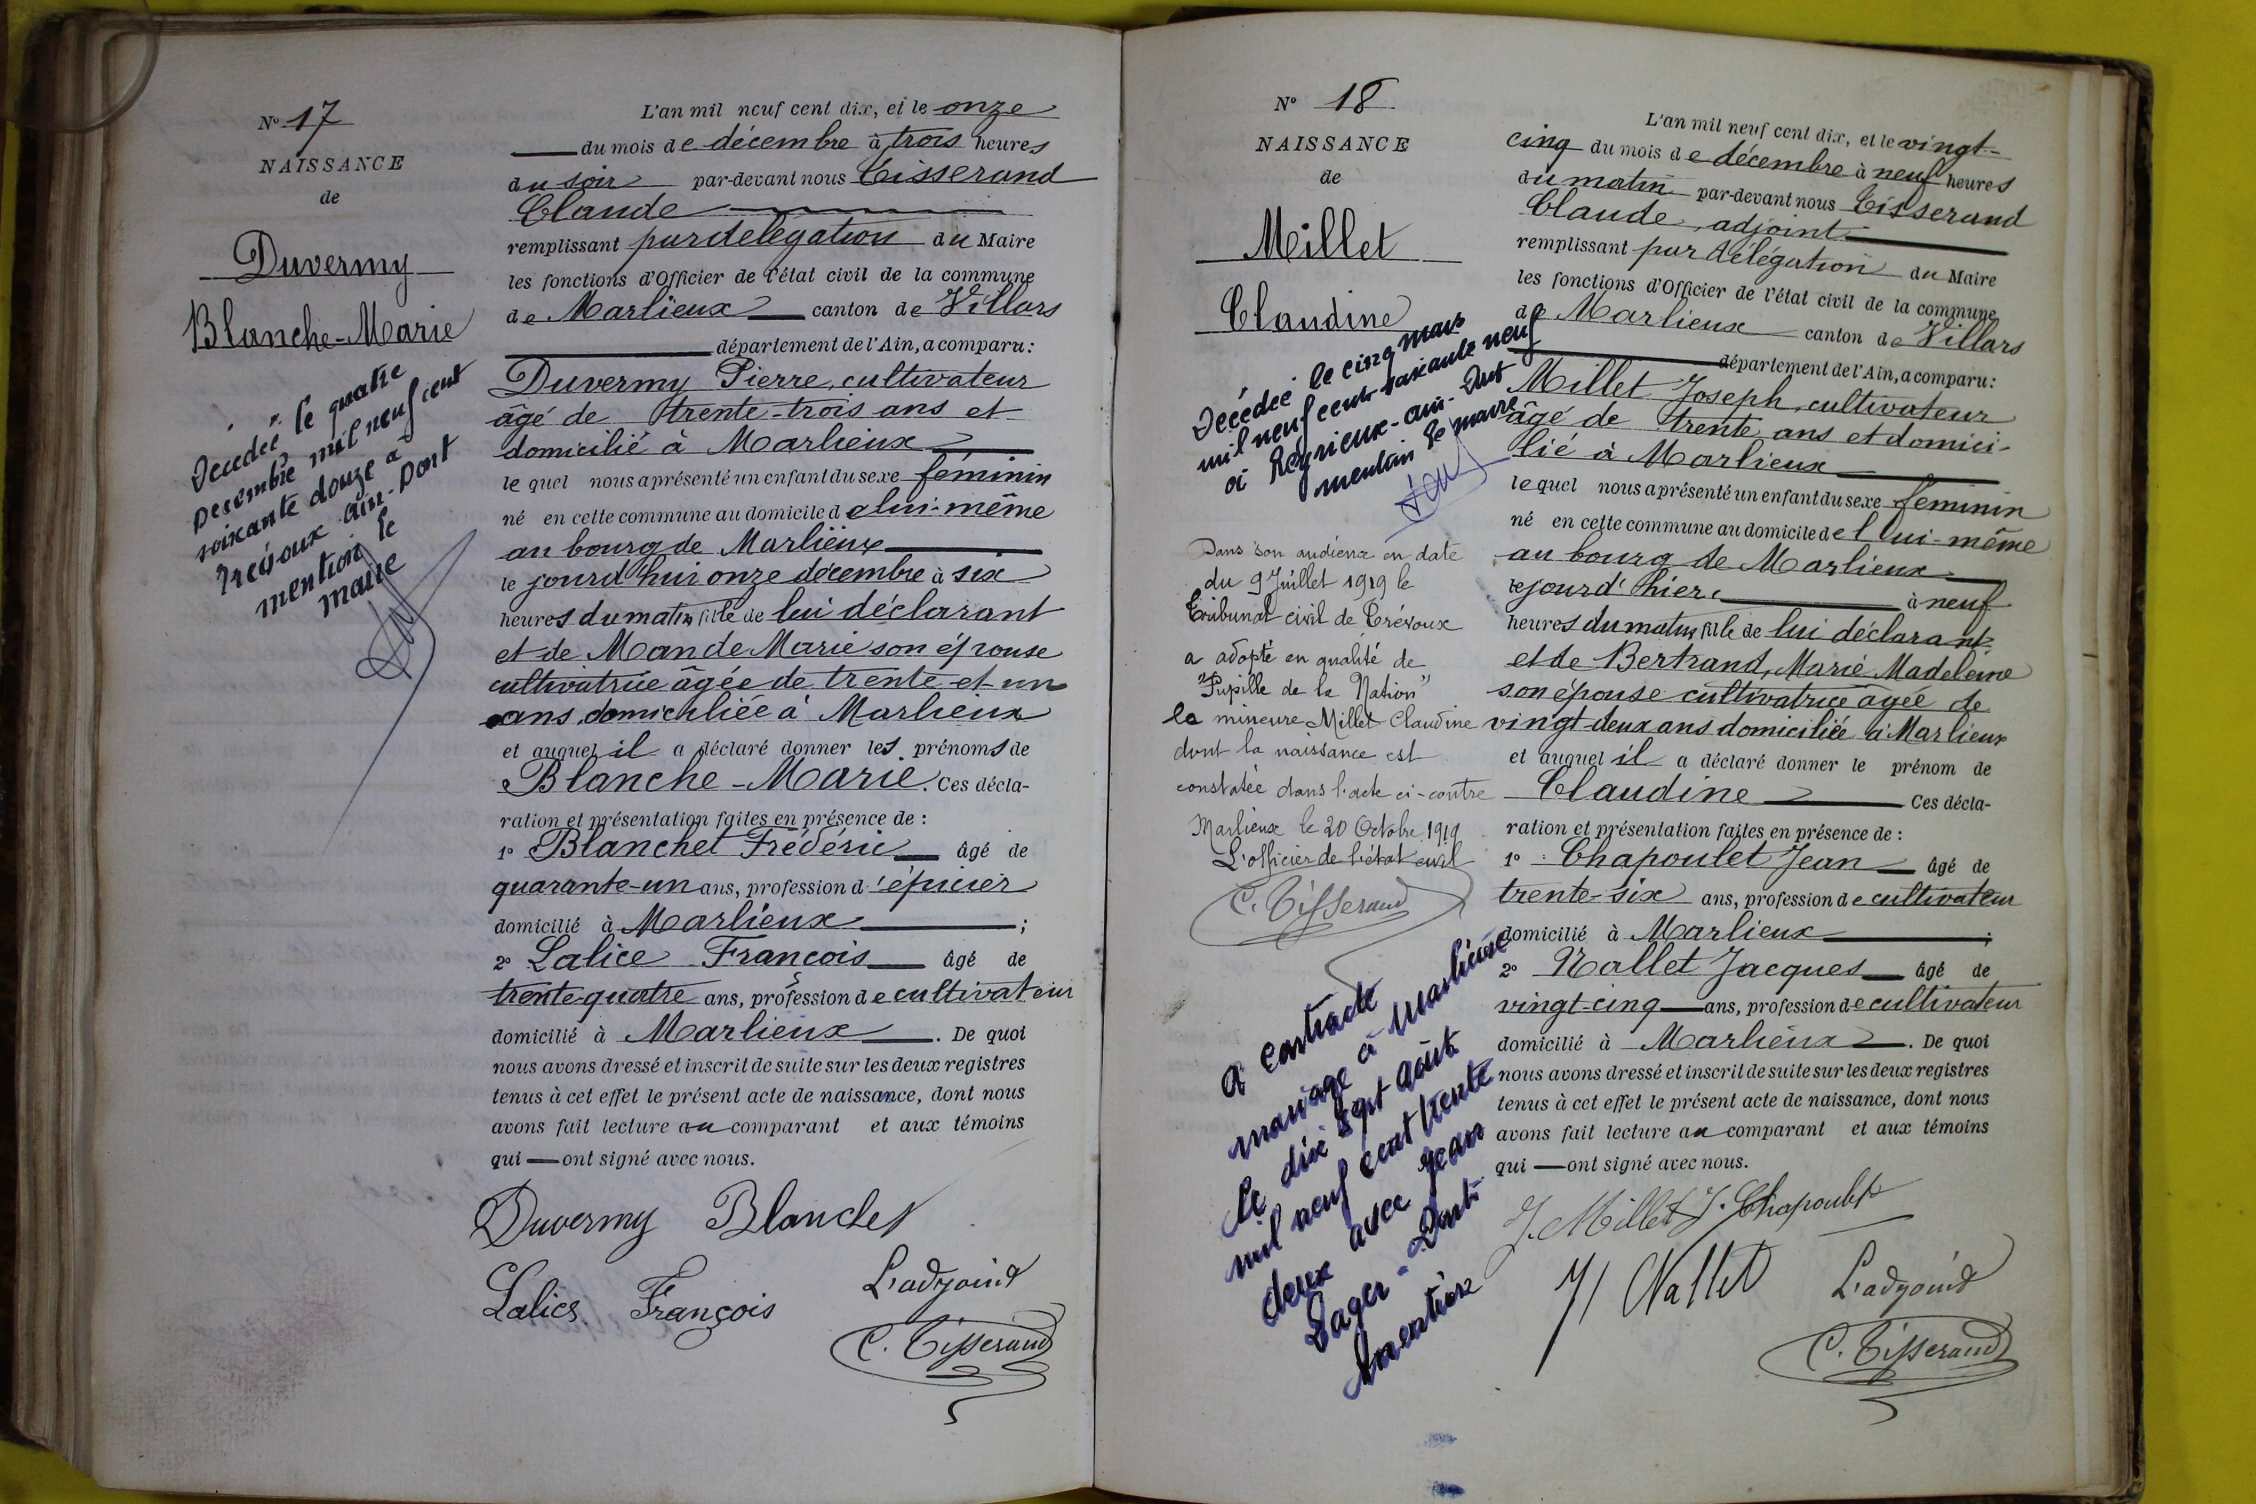 N° 17
NAISSANCE
de
Duvermy
Blanche-Marie
Décédée le quatre
décembre mil neuf cent
soixante douze à
Trévoux ain. Dont
mention le
maire
L'an mil neuf cent dix, et le onze
du mois de décembre à trois heures
du soir par-devant nous Tisserand
Claude
remplissant par délégation du Maire
les fonctions d'Officier de l'état civil de la commune
de Marlieux canton de Villars
département de l'Ain, a comparu :
Duvermy Pierre, cultivateur
âgé de trente-trois ans et
domicilié à Marlieux
lequel nous a présenté un enfant du sexe féminin
né en cette commune au domicile de lui-même
au bourg de Marlieux
le jourd'hui onze décembre à six
heures du matin fille de lui déclarant
et de Mande Marie son épouse
cultivatrice âgée de trente-et-un
ans domiciliée à Marlieux
et auquel il a déclaré donner les prénoms de
Blanche-Marie. Ces décla-
ration et présentation faites en présence de :
1° Blanchet Frédéric âgé de
quarante-un ans, profession d'épicier
domicilié à Marlieux ;
2° Lalice François âgé de
trente-quatre ans, profession de cultivateur
domicilié à Marlieux. De quoi
nous avons dressé et inscrit de suite sur les deux registres
tenus à cet effet le présent acte de naissance, dont nous
avons fait lecture au comparant et aux témoins
qui ont signé avec nous.
Duvermy Blanchet
Lalice François L'adjoint
C. Tisserand
N° 18
NAISSANCE
de
Millet
Claudine
Décédée le cinq mars
mil neuf cent soixante neuf
à Reyrieux-ain-Dont
mention le maire
Dans son audience en date
du 9 Juillet 1919 le
Tribunal civil de Trévoux
a adopté en qualité de
"Pupille de la Nation"
la mineure Millet Claudine
dont la naissance est
constatée dans l'acte ci-contre
Marlieux le 20 Octobre 1919
L'officier de l'état civil
C. Tisserand
A contracté
mariage à Marlieux
le dix sept août
mil neuf cent trente
deux avec Jean
Pager - Dont
mention
L'an mil neuf cent dix, et le vingt-
cinq du mois de décembre à neuf heures
du matin par-devant nous Tisserand
Claude, adjoint
remplissant par délégation du Maire
les fonctions d'Officier de l'état civil de la commune
de Marlieux canton de Villars
département de l'Ain, a comparu :
Millet Joseph, cultivateur
âgé de trente ans et domici-
lié à Marlieux
lequel nous a présenté un enfant du sexe féminin
né en cette commune au domicile de lui-même
au bourg de Marlieux
le jourd'hier à neuf
heures du matin fille de lui déclarant
et de Bertrand, Marie Madeleine
son épouse cultivatrice âgée de
vingt-deux ans domiciliée à Marlieux
et auquel il a déclaré donner le prénom de
Claudine Ces décla-
ration et présentation faites en présence de :
1° Chapoulet Jean âgé de
trente-six ans, profession de cultivateur
domicilié à Marlieux ;
2° Nallet Jacques âgé de
vingt-cinq ans, profession de cultivateur
domicilié à Marlieux. De quoi
nous avons dressé et inscrit de suite sur les deux registres
tenus à cet effet le présent acte de naissance, dont nous
avons fait lecture au comparant et aux témoins
qui ont signé avec nous.
J. Millet J. Chapoulet
J Nallet L'adjoint
C. Tisserand